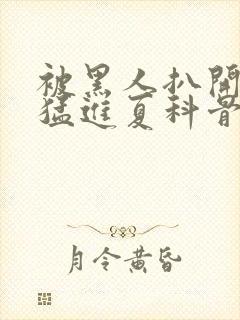 被黑人扒開
猛進夏科骨
月令黃昏